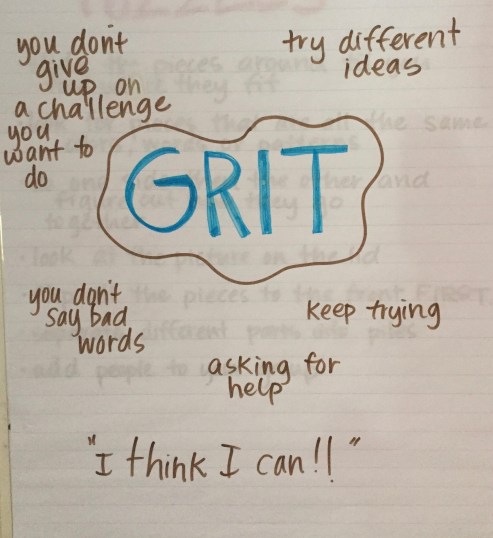 you don't
give
up on
a challenge
you
want to
do
try different
ideas
GRIT
you don't
say bad
words
keep trying
asking for
help
"I think I can!!"